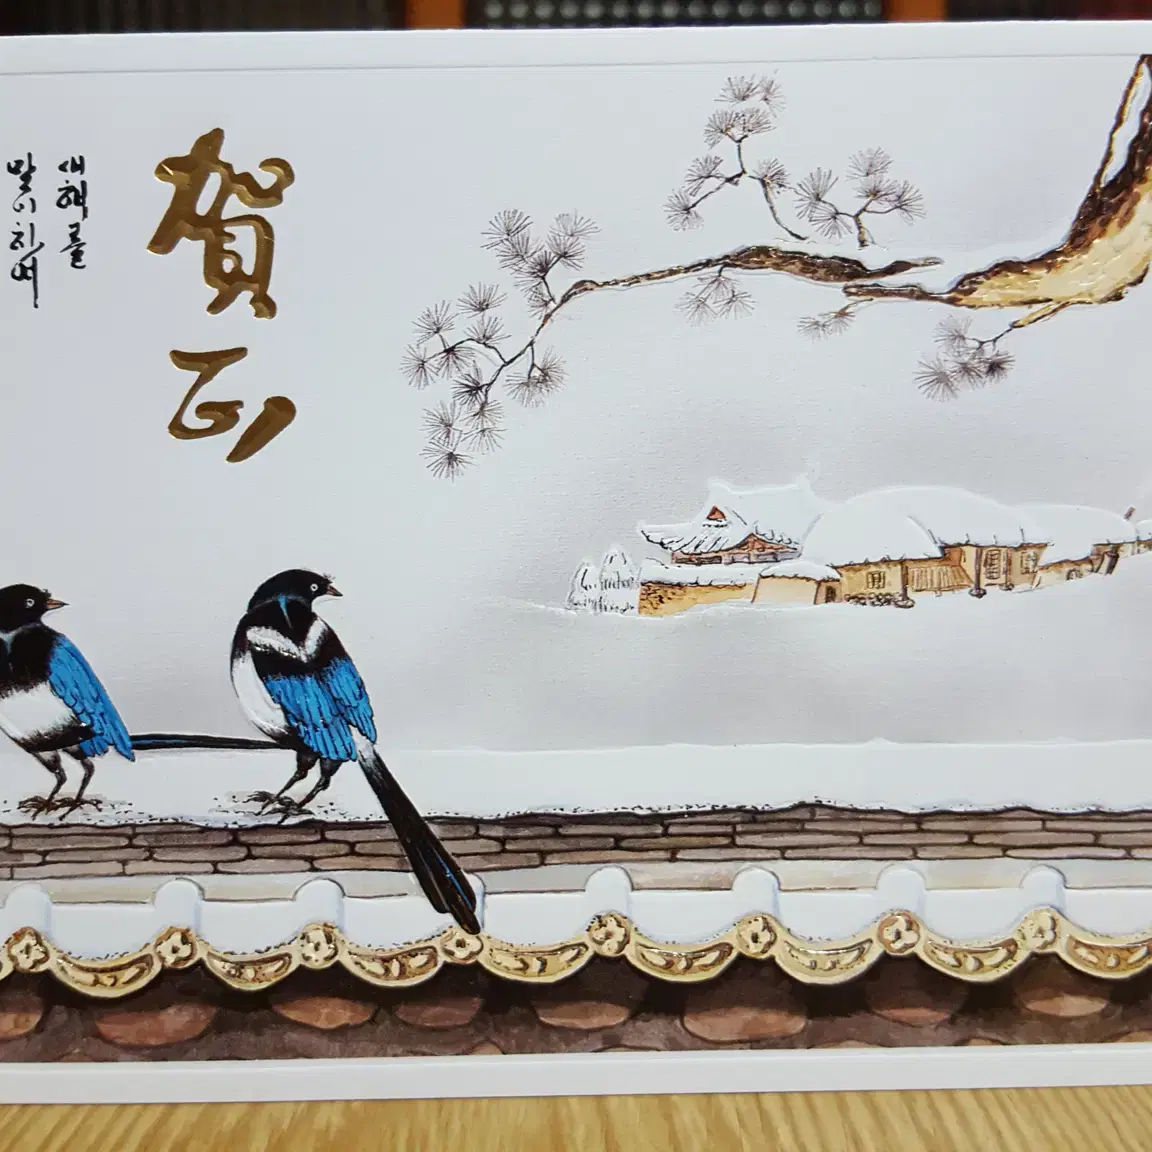 賀正
새해를
맞이하며